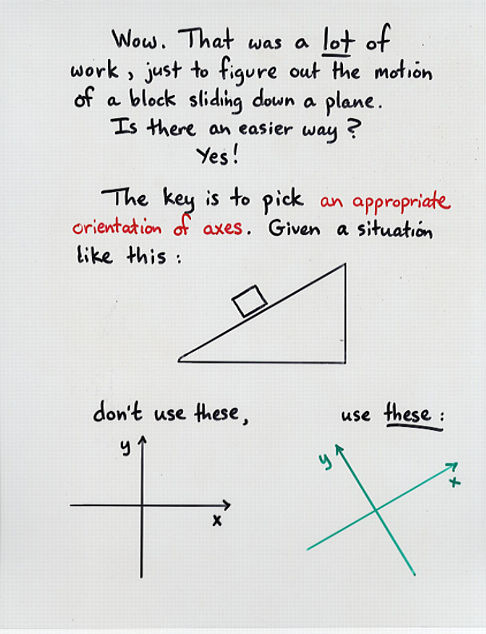 Wow. That was a lot of
work, just to figure out the motion
of a block sliding down a plane.
Is there an easier way?
Yes!
The key is to pick an appropriate
orientation of axes. Given a situation
like this:
don't use these,
use these:
y
x
y
x